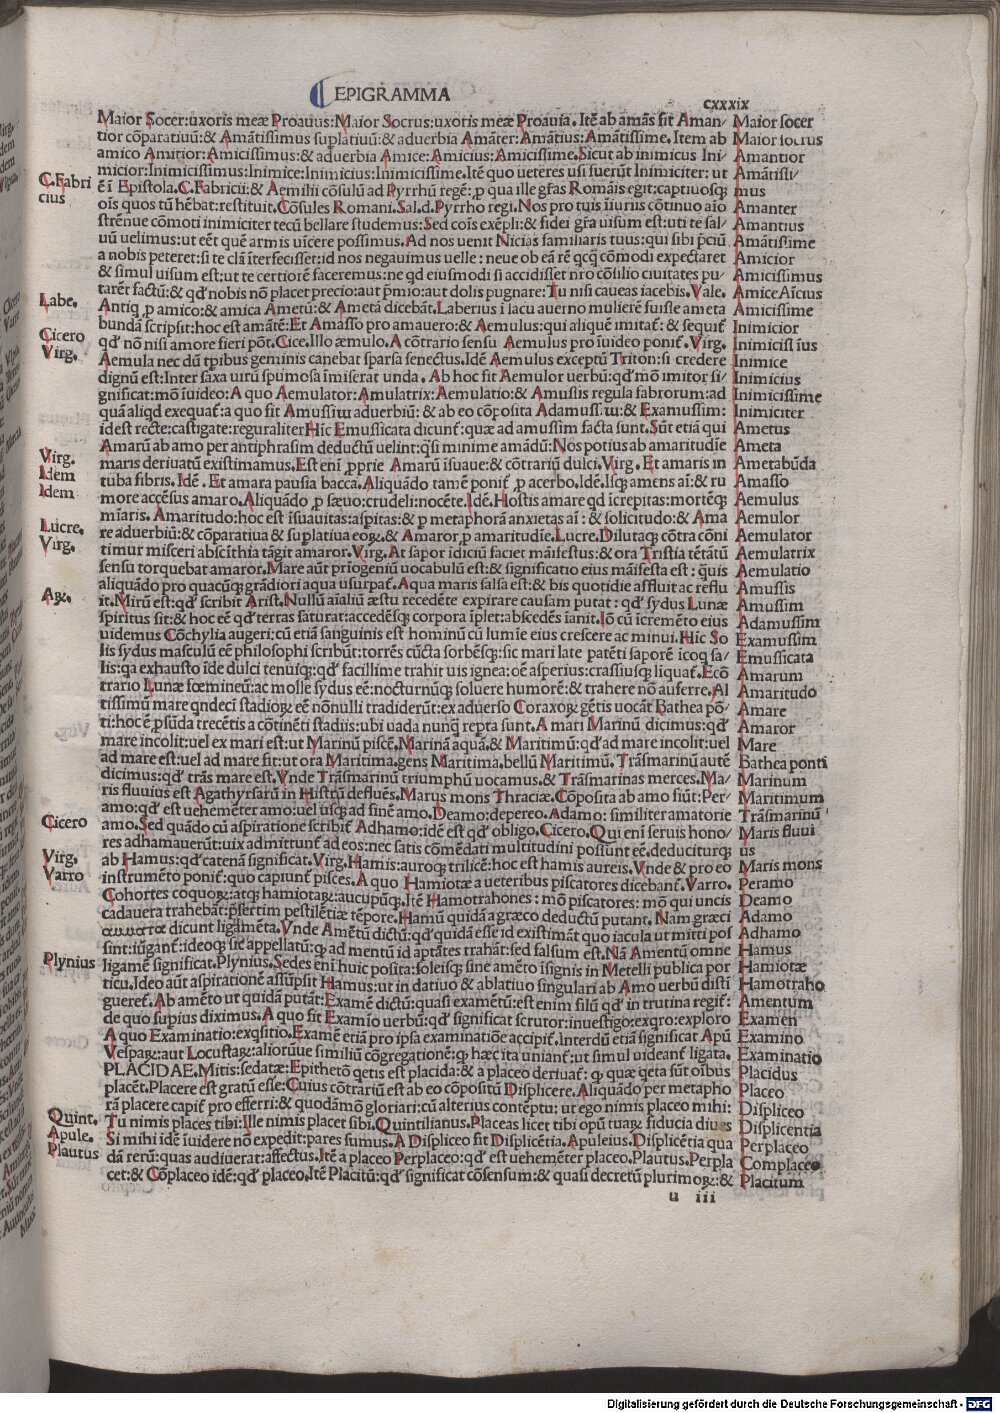 EPIGRAMMA
cxxxix
Maior Socer:uxoris meæ Proauus:Maior Socrus:uxoris meæ Proauia.Itē ab amās fit Aman/
tior cōparatiuū:& Amātissimus suplatiuū:& aduerbia Amāter:Amātius:Amātissime.Item ab
amico Amitior:Amicissimus:& aduerbia Amice:Amicius:Amicissime.Sicut ab inimicus Ini/
micior:Inimicissimus:Inimice:Inimicius:Inimicissime.Itē quo ueteres usi fuerūt Inimiciter:ut
ē ī Epistola.C.Fabricii:& Aemilii cōsulū ad Pyrrhū regē:ꝑ qua ille gr̄as Romāis egit:captiuosqꝫ
oīs quos tū hēbat:restituit.Cōsules Romani.Sal.d.Pyrrho regi.Nos pro tuis iiuriis cōtinuo aīo
strēnue cōmoti inimiciter tecū bellare studemus:Sed coīs exēpli:& fidei gr̄a uisum est:uti te sal/
uū uelimus:ut eēt quē armis uīcere possimus.Ad nos uenit Nicias familiaris tuus:qui sibi p̄ciū
a nobis peteret:si te clā īterfecisset:id nos negauimus uelle:neue ob eā rē qcꝗ cōmodi expectaret
& simul uisum est:ut te certiorē faceremus:ne qd eiusmodi si accidisset nr̄o cōsilio ciuitates pu/
tarēt factū:& qd' nobis nō placet precio:aut p̄mio:aut dolis pugnare:Tu nisi caueas iacebis.Vale.
Antiq ꝓ amico:& amica Ametū:& Ametā dicebāt.Laberius ī lacu auerno mulierē fuisse ameta
bundā scripsit:hoc est amātē:Et Amasso pro amauero:& Aemulus:qui aliquē imitat̄:& sequit̄
qd' nō nisi amore fieri pōt.Cice.Illo æmulo.A cōtrario sensu Aemulus pro īuideo ponit̄.Virg.
Aemula nec dū tꝑibus geminis canebat sparsa senectus.Idē Aemulus exceptū Triton:si credere
dignū est:Inter saxa uirū spumosa īmiserat unda.Ab hoc fit Aemulor uerbū:qd' mō imitor si/
gnificat:mō īuideo:A quo Aemulator:Amulatrix:Aemulatio:& Amussis regula fabrorum:ad
quā aliqd exequat̄:a quo fit Amussim aduerbiū:& ab eo cōposita Adamussim:& Examussim:
idest recte:castigate:regulariter Hic Emussicata dicunt̄:quæ ad amussim facta sunt.Sūt etiā qui
Amarū ab amo per antiphrasim deductū uelint:qsi minime amādū:Nos potius ab amaritudie
maris deriuatū existimamus.Est eni ꝓprie Amarū īsuaue:& cōtrariū dulci.Virg.Et amaris in
tuba fibris.Idē.Et amara pausia bacca.Aliquādo tamē ponit̄ ꝓ acerbo.Idē.Isqꝫ amens aī:& ru
more accēsus amaro.Aliquādo ꝓ sæuo:crudeli:nocēte.Idē.Hostis amare qd īcrepitas:mortēqꝫ
mīaris.Amaritudo:hoc est īsuauitas:aspitas:& ꝑ metaphorā anxietas aī:& solicitudo:& Ama
re aduerbiū:& cōparatiua & suplatiua eoꝝ.& Amaror ꝓ amaritudīe.Lucre.Dilutaqꝫ cōtra cōni
timur misceri abscīthia tāgit amaror.Virg.At sapor idiciū faciet māifestus:& ora Tristia tētātū
sensu torquebat amaror.Mare aūt prīogeniū uocabulū est:& significatio eius māifesta est:quis
aliquādo pro quacūqꝫ grādiori aqua usurpat̄.Aqua maris salsa est:& bis quotidie affluit ac reflu
it.Mirū est:qd' scribit Arist.Nullū aīaliū æstu recedēte expirare causam putat:qd' sydus Lunæ
spiritus sit:& hoc eē qd' terras saturat:accedēsqꝫ corpora īplet:abscedēs īanit.Iō cū īcremēto eius
uidemus Cōchylia augeri:cū etiā sanguinis est hominū cū lumīe eius crescere ac minui.Hic So
lis sydus masculū eē philosophi scribūt:torrēs cūcta sorbēsqꝫ:sic mari late patēti saporē icoq sa/
lis:qa exhausto īde dulci tenuiqꝫ:qd' facillime trahit uis ignea:oē asperius:crassiusqꝫ liquat.Ecō
trario Lunæ fœmineū:ac molle sydus eē:nocturnūqꝫ soluere humorē:& trahere nō auferre.Al
tissimū mare qndeci stadioꝝ eē nōnulli tradiderūt:ex aduerso Coraxoꝝ gētis uocāt Bathea pō
ti:hoc ē ꝓfūda trecētis a cōtinēti stadiis:ubi uada nunqꝫ repta sunt.A mari Marinū dicimus:qd'
mare incolit:uel ex mari est:ut Marinū piscē.Marinā aquā.& Maritimū:qd' ad mare incolit:uel
ad mare est:uel ad mare fit:ut ora Maritima.gens Maritima.bellū Maritimū.Trāsmarinū autē
dicimus:qd' trās mare est.Vnde Trāsmarinū triumphū uocamus.& Trāsmarinas merces.Ma/
ris fluuius est Agathyrsarū in Histrū defluēs.Marus mons Thraciæ.Cōposita ab amo fiūt:Per/
amo:qd' est uehemēter amo:uel usqꝫ ad finē amo.Deamo:depereo.Adamo:similiter amatorie
amo.Sed quādo cū aspiratione scribit̄ Adhamo:idē est qd' obligo.Cicero.Qui eni seruis hono/
res adhamauerūt:uix admittunt̄ ad eos:nec satis cōmēdati multitudini possunt eē.deduciturqꝫ
ab Hamus:qd' catenā significat.Virg.Hamis:auroqꝫ trilicē:hoc est hamis aureis.Vnde & pro eo
instrumēto ponit̄:quo capiunt̄ pisces.A quo Hamiotæ a ueteribus piscatores dicebant̄.Varro.
Cohortes coquoꝝ:atqꝫ hamiotaꝝ:aucupūqꝫ.Itē Hamotrahones:mō piscatores:mō qui uncis
cadauera trahebāt:p̄sertim pestilētiæ tēpore.Hamū quidā a græco deductū putant.Nam græci
ἅμματα dicunt ligamēta.Vnde Amētū dictū:qd' quidā esse id existimāt quo iacula ut mitti pos
sint:iūgant̄:ideoqꝫ sic appellatū:qꝫ ad mentū id aptātes trahāt:sed falsum est.Nā Amentū omne
ligamē significat.Plynius.Sedes eni huic posita:soleisqꝫ sine amēto īsignis in Metelli publica por
ticu.Ideo aūt aspirationē assūpsit Hamus:ut in datiuo & ablatiuo singulari ab Amo uerbū disti
gueret̄.Ab amēto ut quidā putāt:Examē dictū:quasi examētū:est enim filū qd' in trutina regit̄:
de quo supius diximus.A quo fit Examīo uerbū:qd' significat scrutor:inuestigo:exqro:exploro
A quo Examinatio:exqsitio.Examē etiā pro ipsa examinatiōe accipit̄.Interdū etiā significat Apū
Vespaꝝ:aut Locustaꝝ:aliorūue similiū cōgregationē:qꝫ hæc ita uniant̄:ut simul uideant̄ ligata.
PLACIDAE.Mitis:sedatæ:Epithetō qetis est placida:& a placeo deriuat̄:qꝫ quæ qeta sūt oībus
placēt.Placere est gratū esse:Cuius cōtrariū est ab eo cōpositū Displicere.Aliquādo per metapho
rā placere capit̄ pro efferri:& quodāmō gloriari:cū alterius contēptu:ut ego nimis placeo mihi:
Tu nimis places tibi:Ille nimis placet sibi.Quintilianus.Placeas licet tibi opū tuaꝝ fiducia diues
Si mihi idē īuidere nō expedit:pares sumus.A Displiceo fit Displicētia.Apuleius.Displicētia qua
dā rerū:quas audiuerat:affectus.Itē a placeo Perplaceo:qd' est uehemēter placeo.Plautus.Perpla
cet:& Cōplaceo idē:qd' placeo.Itē Placitū:qd' significat cōsensum:& quasi decretū plurimoꝝ:&
u iii
C.Fabri
cius
Labe.
Cicero
Virg.
Virg.
Idem
Idem
Lucre.
Virg.
Aꝝ.
Cicero
Virg.
Varro
Plynius
Quint.
Apule.
Plautus
Maior socer
Maior socrus
Amantior
Amātissi/
mus
Amanter
Amantius
Amātissime
Amicior
Amicissimus
Amice Aīcius
Amicissime
Inimicior
Inimicissīus
Inimice
Inimicius
Inimicissime
Inimiciter
Ametus
Ameta
Ametabūda
Amasso
Aemulus
Aemulor
Aemulator
Aemulatrix
Aemulatio
Amussis
Amussim
Adamussim
Examussim
Emussicata
Amarum
Amaritudo
Amare
Amaror
Mare
Bathea ponti
Marinum
Maritimum
Trāsmarinū
Maris fluui
us
Maris mons
Peramo
Deamo
Adamo
Adhamo
Hamus
Hamiotæ
Hamotraho
Amentum
Examen
Examino
Examinatio
Placidus
Placeo
Displiceo
Displicentia
Perplaceo
Complaceo
Placitum
Digitalisierung gefördert durch die Deutsche Forschungsgemeinschaft - DFG